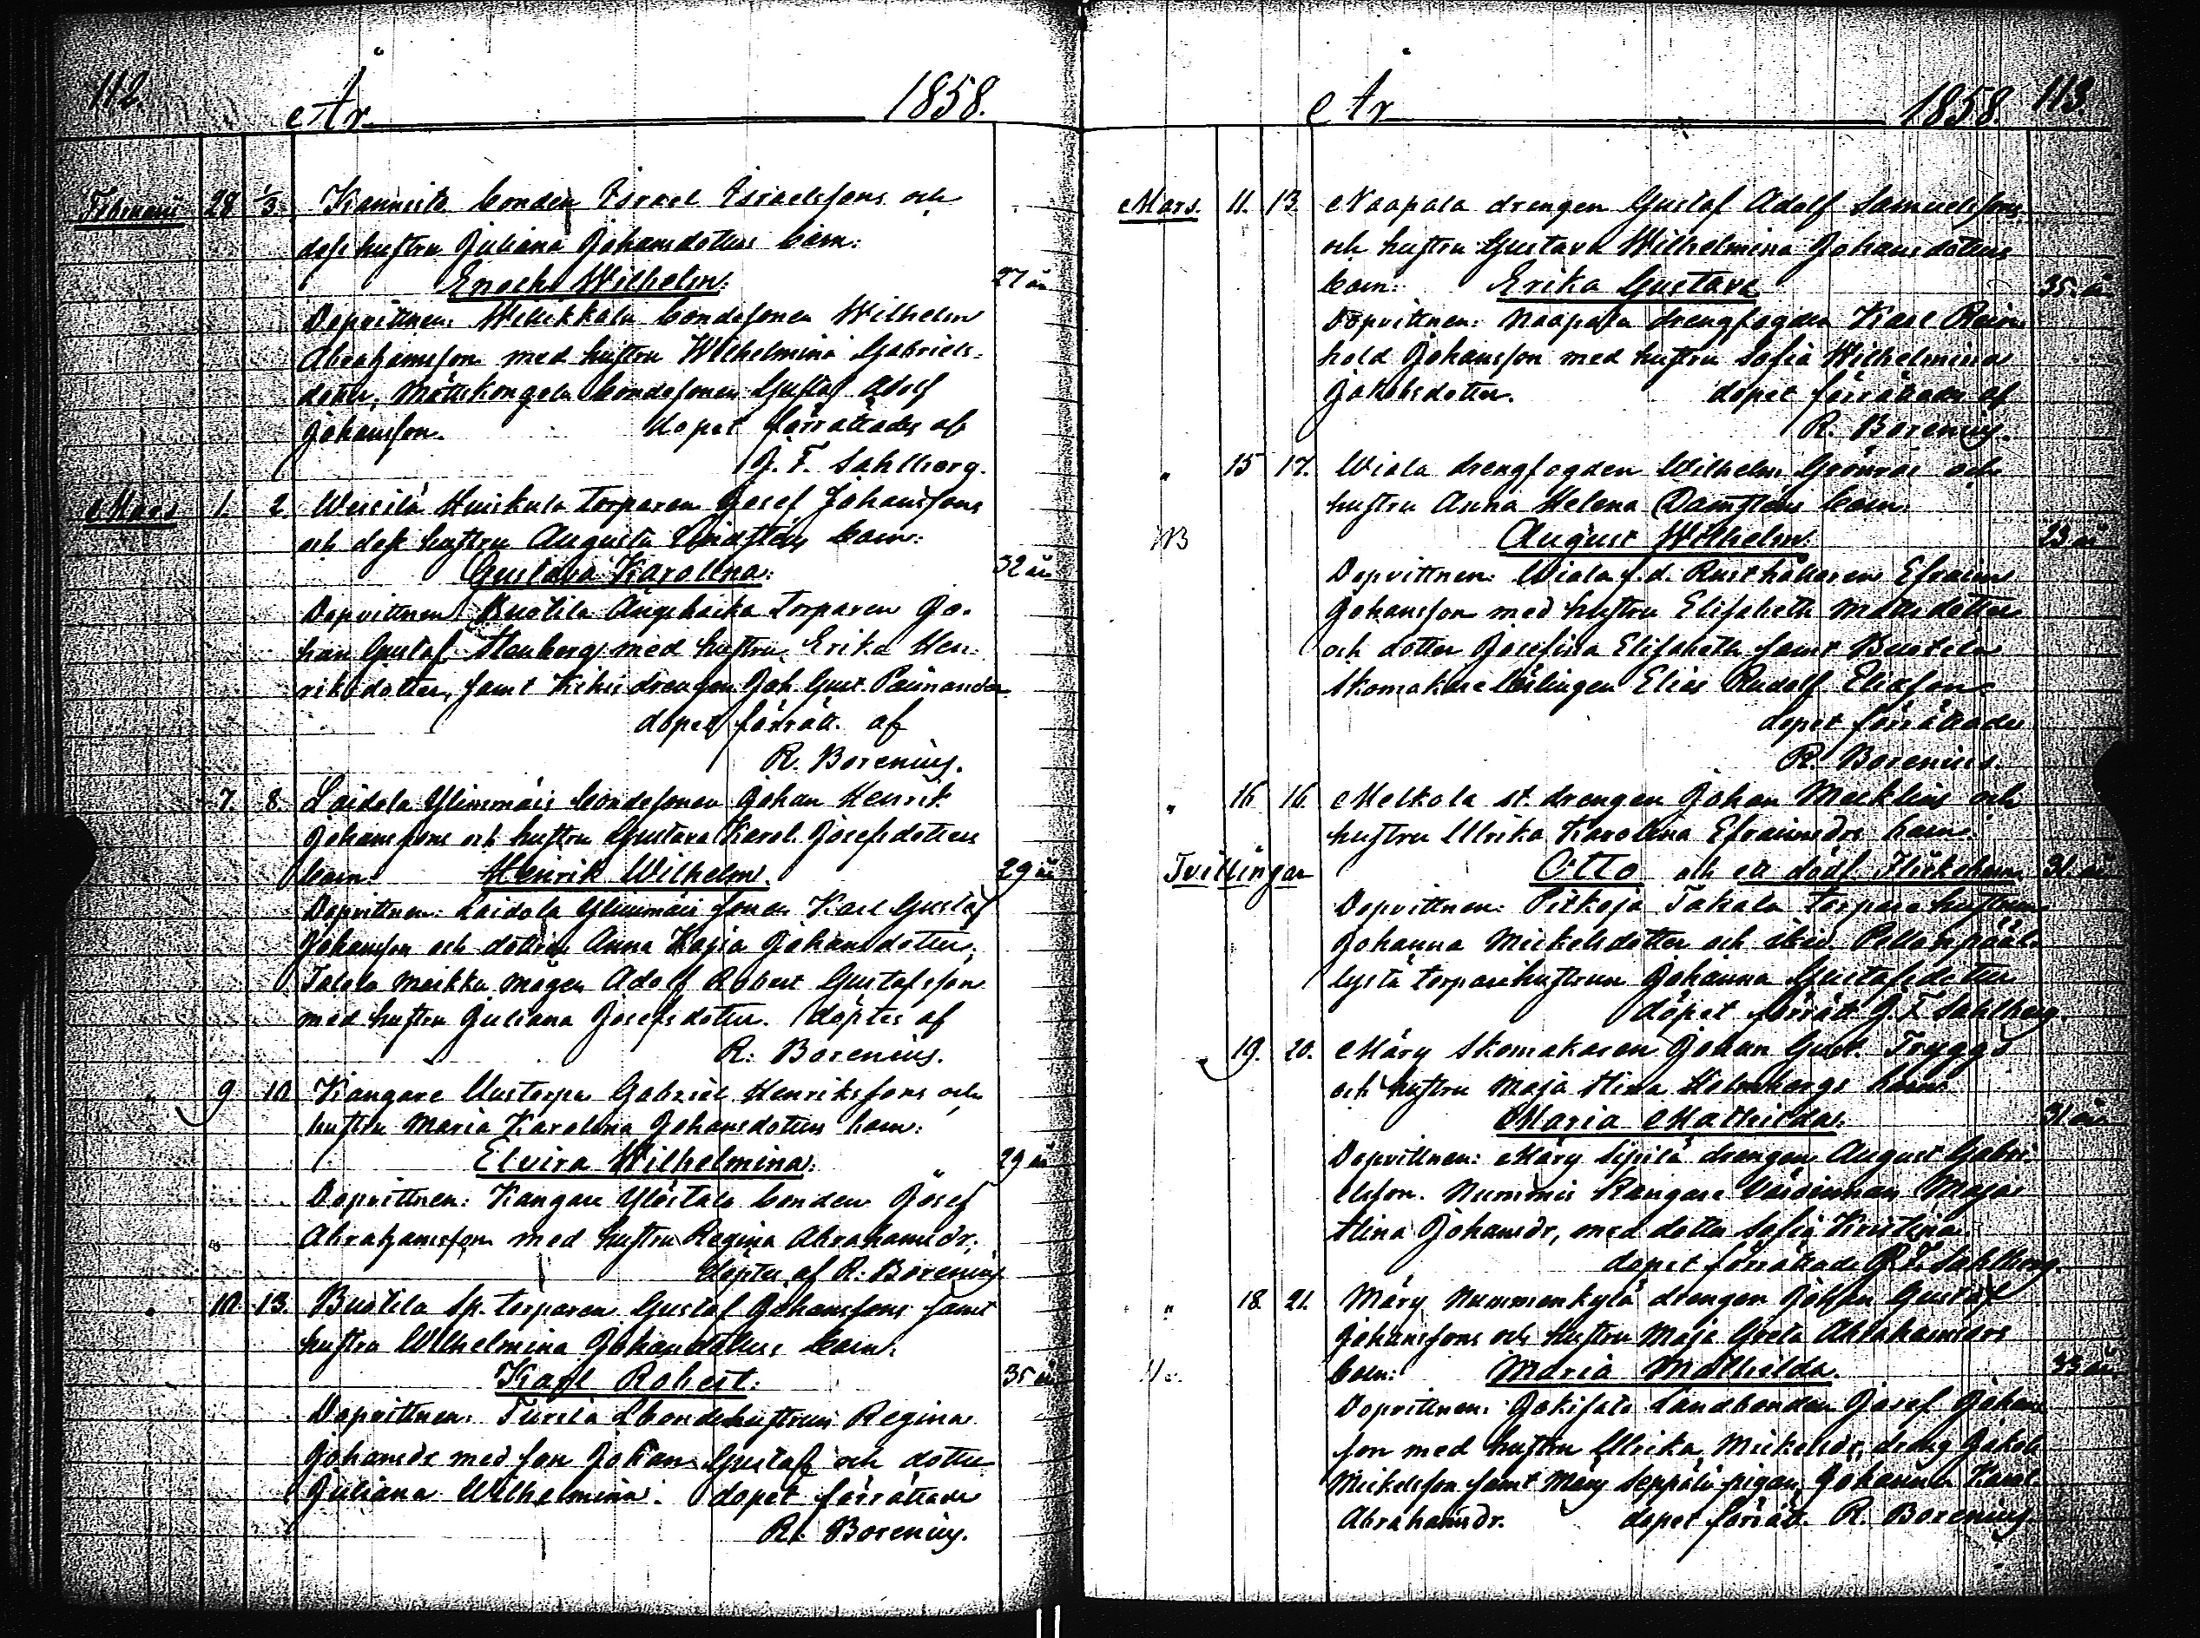 112.
År 1858.
Februari 28 1/3 Kanneisto bonden Israel Israelssons och
dess hustru Juliana Johansdotters barn:
Enoch Wilhelm. 27 år
Dopvittnen: bondesonen Wilhelm
Abrahamsson med hustru Wilhelmina Gabriels-
dotter, bondesonen Gustaf Adolf
Johansson. dopet förrättades af
J. F. Sahlberg.
Mars 1. 2. torparen Josef Johanssons
och dess hustru Augusta barn:
Gustava Karolina: 32 år
Dopvittnen: torparen Jo-
han Gustaf Stenberg med hustru Erika Hen-
riksdotter, samt drengen Joh. Gust.
dopet förrätt. af
R. Borenius.
7. 8. Laidola Ylimmäis bondesonen Johan Henrik
Johanssons och hustru Gustava Karol. Josefsdotters
barn: Henrik Wilhelm. 29 år
Dopvittnen: Laidola Ylimmäis sonen Karl Gustaf
Johansson och dottren Anna Kajsa Johansdotter,
Talola mågen Adolf Robert Gustafsson
med hustru Juliana Josefsdotter. döptes af
R. Borenius.
" 9 10 Kangare Gabriel Henrikssons och
hustru Maria Karolina Johansdotters barn:
Elvira Wilhelmina: 29 år
Dopvittnen: Kangare Yliskali bonden Josef
Abrahamsson med hustru Regina Abrahamsdr.
döptes af R. Borenius
" 10 13. torparen Gustaf Johanssons samt
hustru Wilhelmina Johansdotters barn:
Karl Robert: 35 år
Dopvittnen: Regina
Johansdr med son Johan Gustaf och dotter
Juliana Wilhelmina. dopet förrättade
R. Borenius.
113.
År 1858.
Mars. 11. 13. Naapala drengen Gustaf Adolf Samuelssons
och hustru Gustava Wilhelmina Johansdotters
barn: Erika Gustava 35 år
Dopvittnen: Naapala drengfogden Karl Rein-
hold Johansson med hustru Sofia Wilhelmina
Jakobsdotter. dopet förrättades af
R. Borenius.
" 15 17. Wiala drengfogden Wilhelm Grönroos och
hustru Anna Helena Damsténs barn:
NB August Wilhelm. 23 år
Dopvittnen: Wiala f. d. Rusthållaren Efraim
Johansson med hustru Elisabeth Mattsdotter
och dotter Josefina Elisabeth samt
Skomakare lärlingen Elias Rudolf Eliasson
dopet förrättade
R. Borenius.
" 16 16. Melkola st. drengen Johan Mecklins och
hustru Ulrika Karolina Efraimsdrs barn:
Tvillingar Otto och ett dödf. Flickebarn 31 år
Dopvittnen: Pitkoja Takala torparehustrun
Johanna Mickelsdotter och
torparehustrun Johanna Gustafsdotter
dopet förrätt. J. F. Sahlberg.
19. 20. Märy Skomakaren Johan Gust. Tryggs
och hustru Maja Stina Holmbergs barn:
Maria Mathilda: 31 år
Dopvittnen: Märy Sipilä drengen August Gabri-
elsson. Nummis Kangare värdinnan Maja
Stina Johansdr, med dotter Sofia Kristina.
dopet förrättade J. F. Sahlberg.
" 18. 21. Märy Nummenkylä drengen Johan Gustaf
Johanssons och hustru Maja Greta Abrahamsdrs
barn: Maria Mathilda. 33 år
Dopvittnen: Landbonden Josef Johans-
son med hustru Ulrika Mickelsdr, dreng Jakob
Mickelsson samt Märy Seppälä pigan Johanna Karol.
Abrahamsdr. dopet förrätt. R. Borenius.